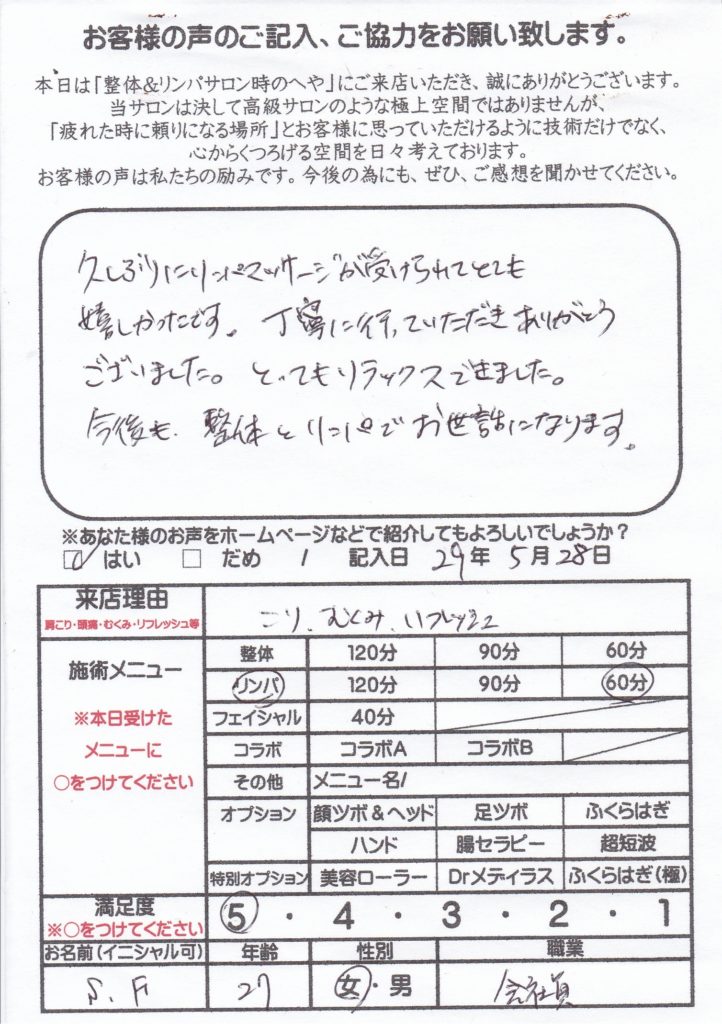 お客様の声のご記入、ご協力をお願い致します。
本日は「整体&リンパサロン時のへや」にご来店いただき、誠にありがとうございます。
当サロンは決して高級サロンのような極上空間ではありませんが、
「疲れた時に頼りになる場所」とお客様に思っていただけるように技術だけでなく、
心からくつろげる空間を日々考えております。
お客様の声は私たちの励みです。今後の為にも、ぜひ、ご感想を聞かせてください。
久しぶりにリンパマッサージが受けられてとても
嬉しかったです。丁寧に行っていただきありがとう
ございました。とってもリラックスできました。
今後も、整体とリンパでお世話になります。
※あなた様のお声をホームページなどで紹介してもよろしいでしょうか?
はい だめ / 記入日 29年 5月28日
来店理由
肩こり・頭痛・むくみ・リフレッシュ等
こり、むくみ、リフレッシュ
施術メニュー
※本日受けた
メニューに
○をつけてください
整体 120分 90分 60分
リンパ 120分 90分 60分
フェイシャル 40分
コラボ コラボA コラボB
その他 メニュー名/
オプション 顔ツボ&ヘッド 足ツボ ふくらはぎ
ハンド 腸セラピー 超短波
特別オプション 美容ローラー Drメディラス ふくらはぎ(極)
満足度
※○をつけてください
5・4・3・2・1
お名前(イニシャル可) 年齢 性別 職業
S.F 27 女・男 会社員